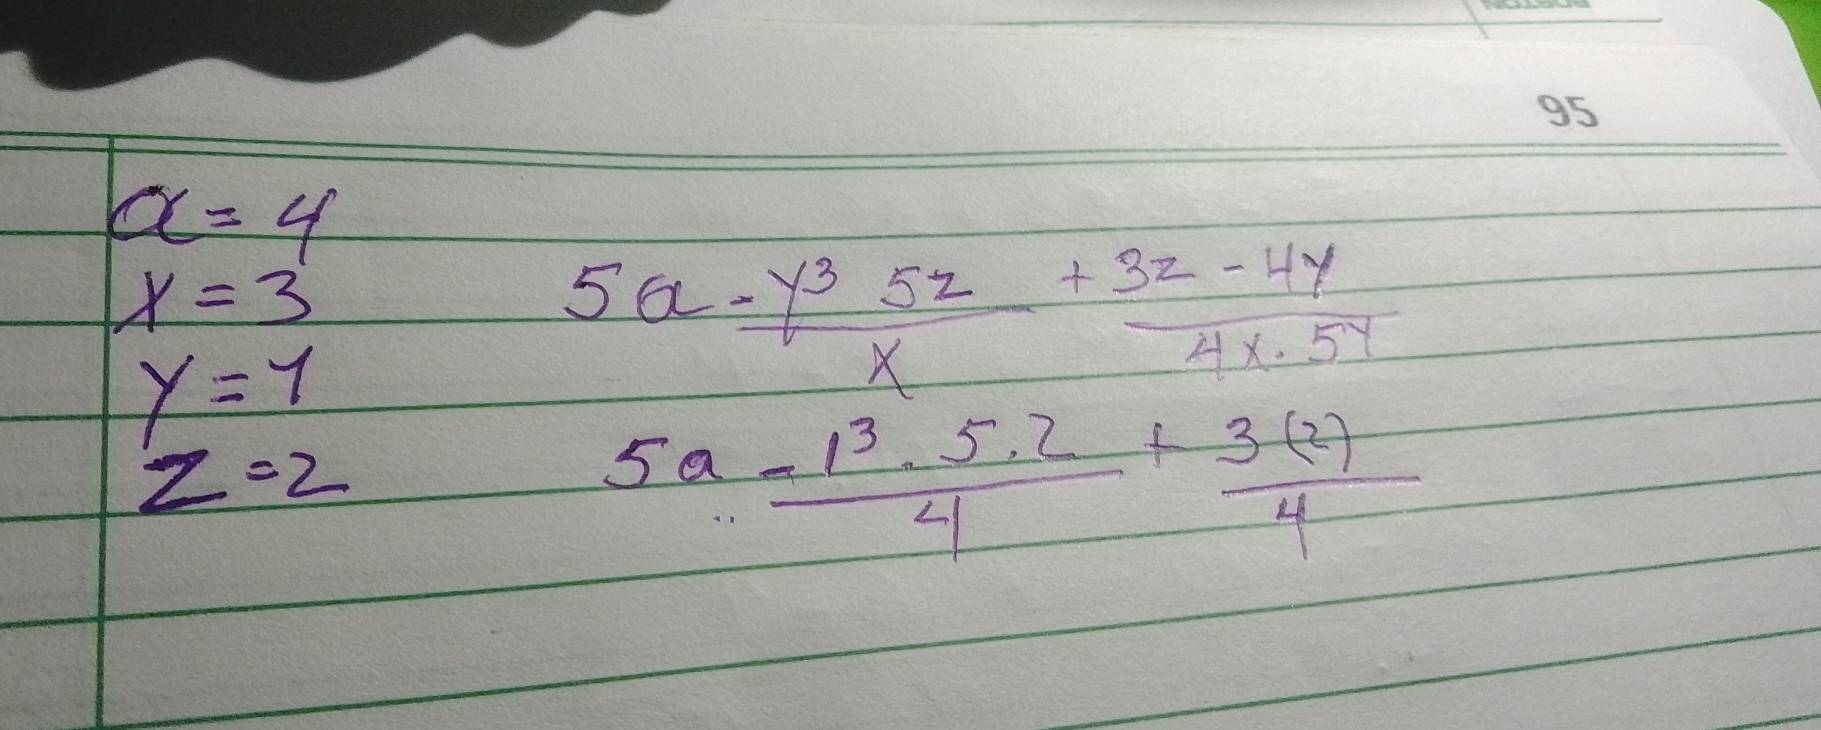 95
a = 4
x = 3
y = 1
z = 2
5a - y³ 5z / x + 3z - 4y / 4x . 5y
5a - 1³ . 5 . 2 / 4 + 3 (2) / 4